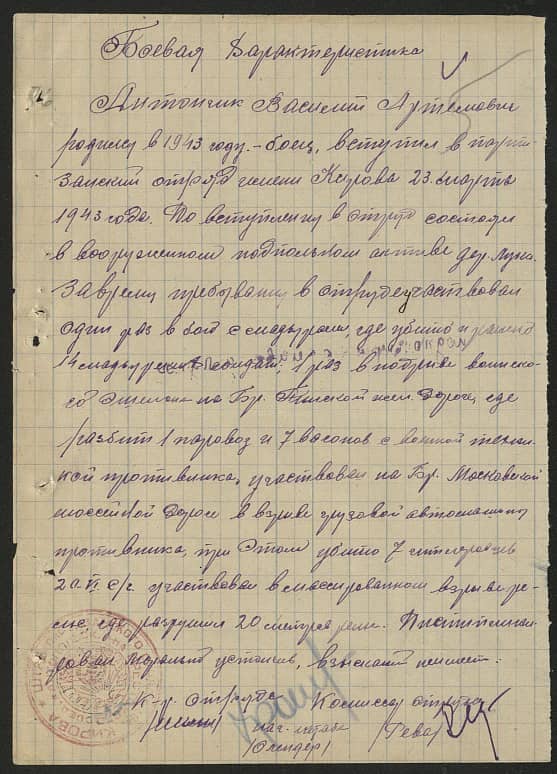 Боевая характеристика
Антончик Василий Артемович
родился в 1943 году. - боец, вступил в парти-
занский отряд имени Кирова 23 марта
1943 года. До вступления в отряд состоял
в вооруженном подпольном активе дер.
За время пребывания в отряде участвовал
один раз в бой с мадьярами, где убито и ранено
14 мадьярских солдат, 1 раз в подрыве воинско-
го эшелона на Бр. Пинской жел. дороге, где
разбит 1 паровоз и 7 вагонов с военной техни-
кой противника, участвовал на Бр. Московской
шоссейной дороге в взрыве грузовой автомашины
противника, при этом убито 7 гитлеровцев
20.VI с/г. участвовал в массированном взрыве ре-
где разрушил 20 метров рельс.
морально устойчив, взысканий не имеет.
К-р отряда Комиссар отряда
Нач. штаба
КИРОВА